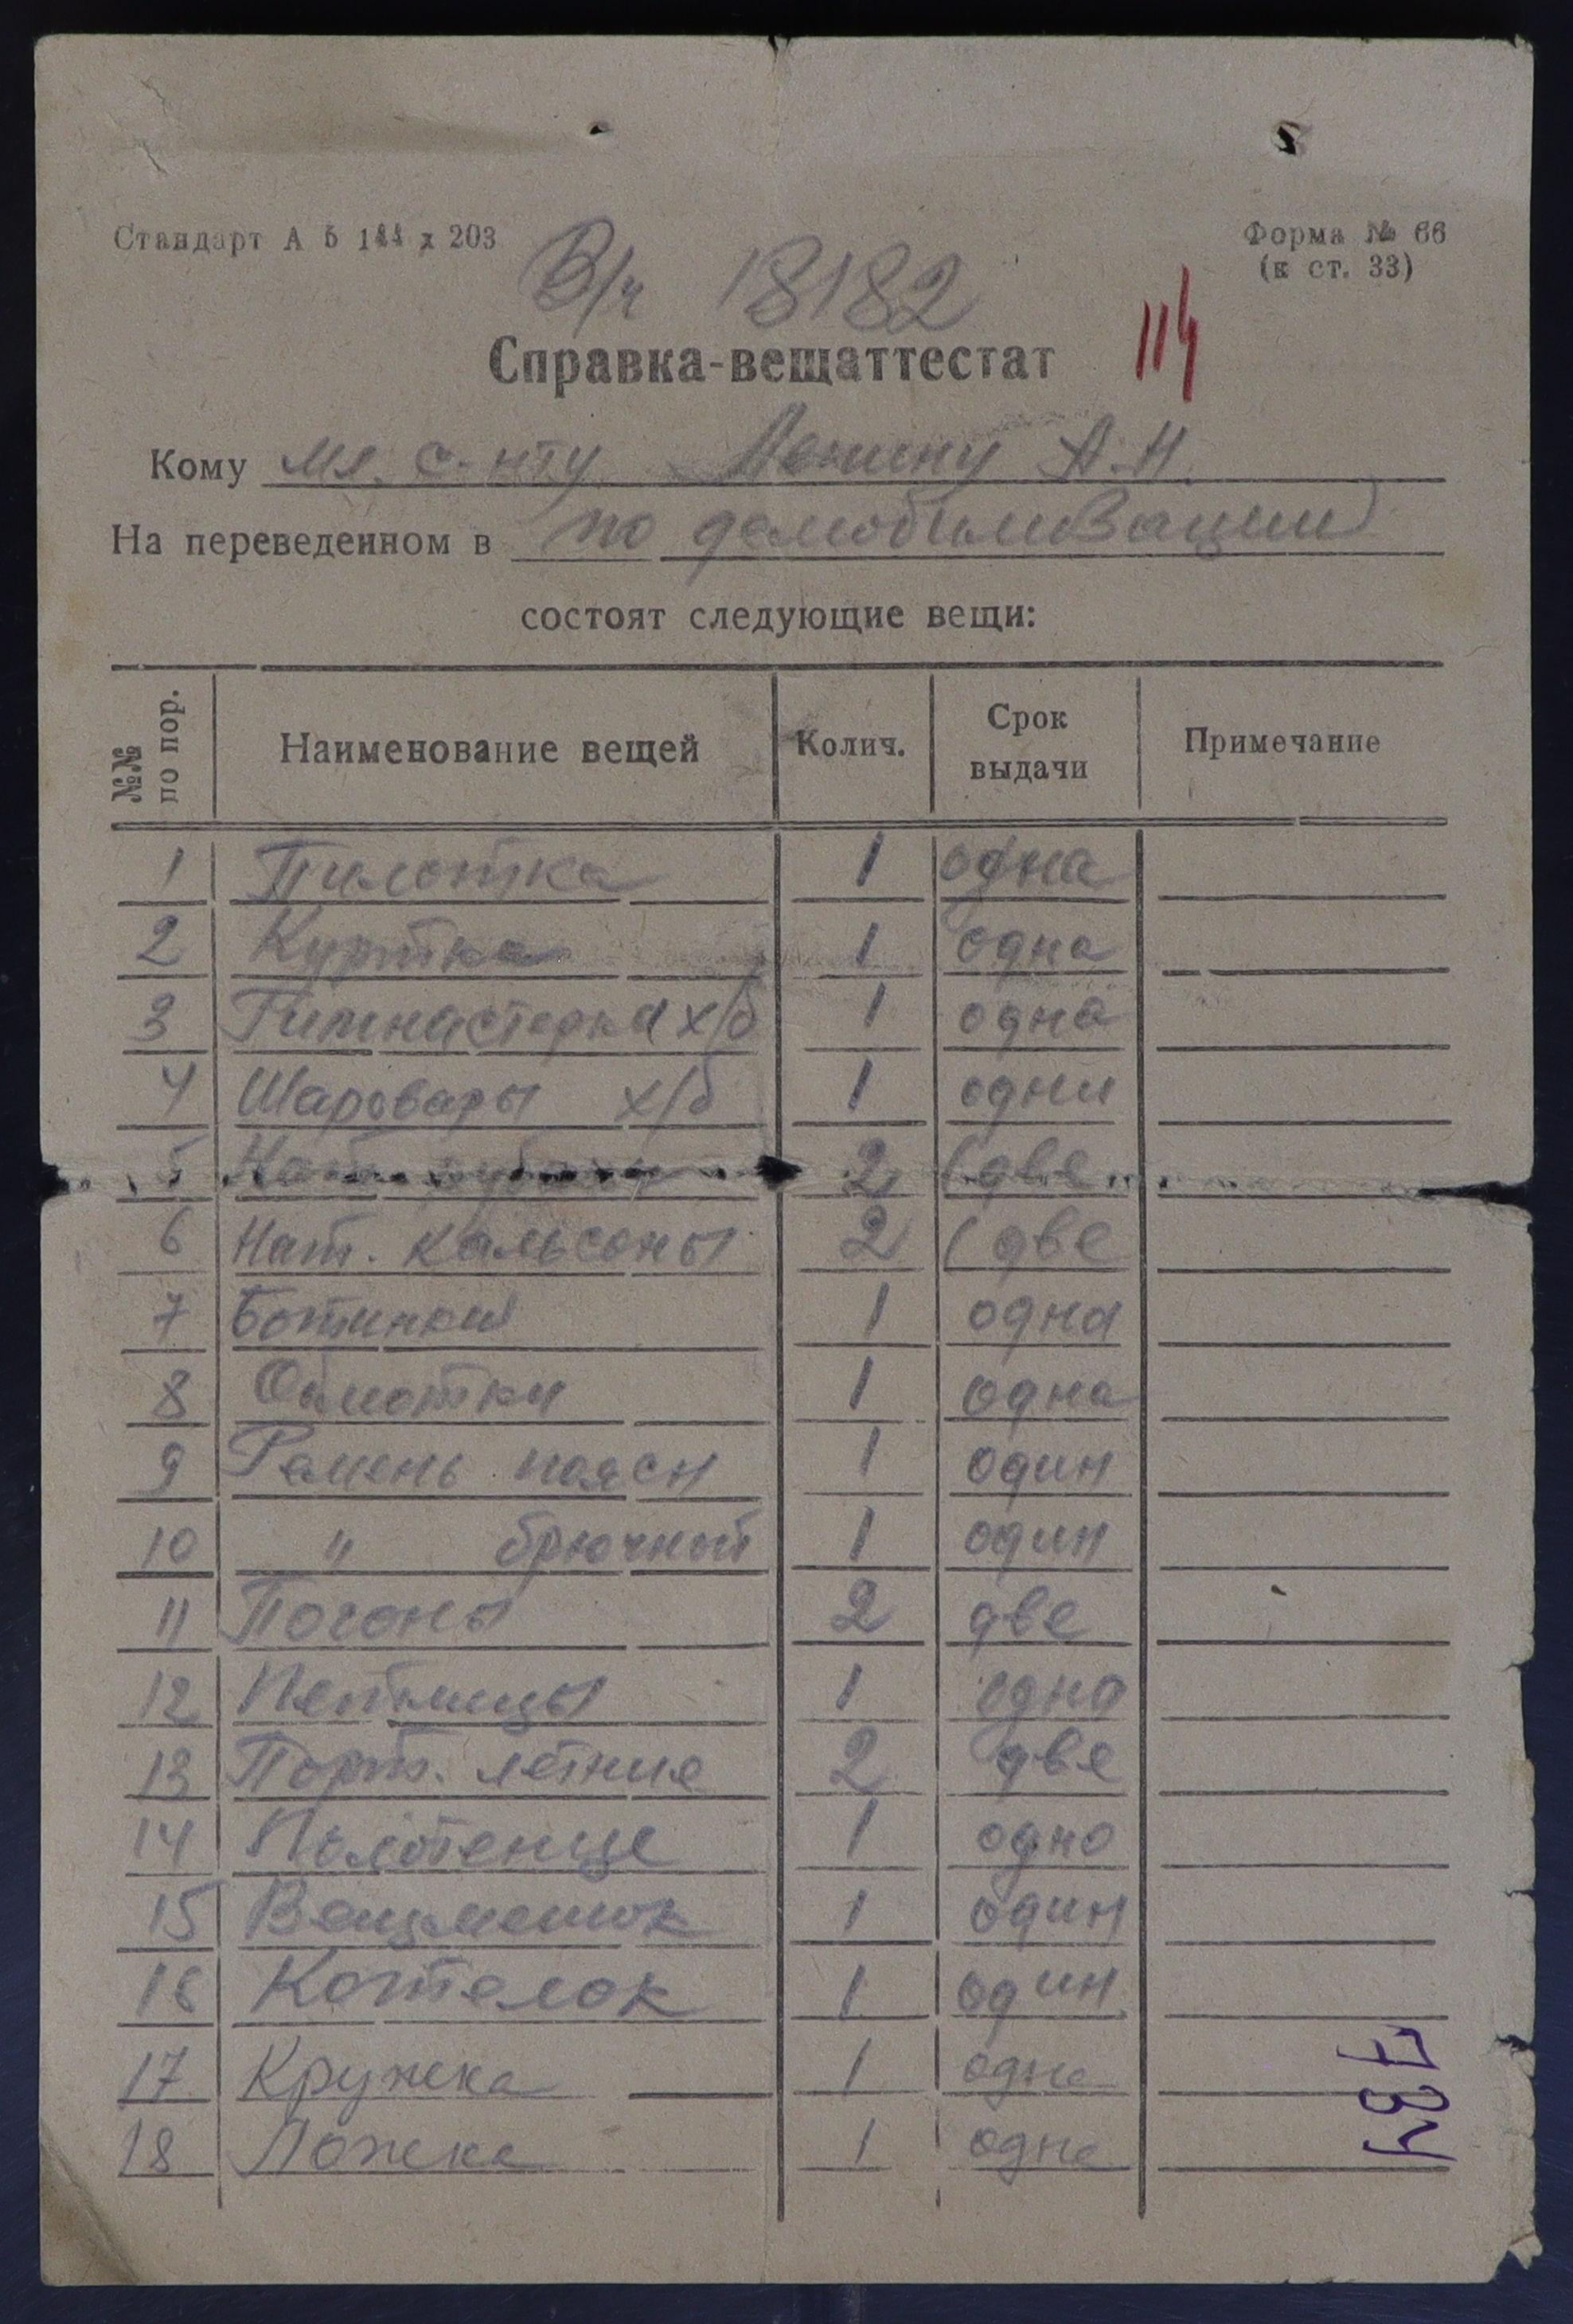 Стандарт А 5 144 х 203
Форма № 66
(к ст. 33)
В/ч 18182
114
Справка-вещаттестат
Кому мл. с-нту Ленину А.Н.
На переведенном в по демобилизации
состоят следующие вещи:
№№ по пор. Наименование вещей Колич. Срок выдачи Примечание
1 Пилотка 1 одна
2 Куртка 1 одна
3 Гимнастерка х/б 1 одна
4 Шаровары х/б 1 одни
5 Нат. 2 (две
6 Нат. кальсоны 2 (две
7 Ботинки 1 одна
8 Обмотки 1 одна
9 Ремень поясн 1 один
10 " брючной 1 один
11 Погоны 2 две
12 Петлицы 1 одна
13 Порт. летние 2 две
14 Полотенце 1 одно
15 Вещмешок 1 один
16 Котелок 1 один
17 Кружка 1 одна
18 Ложка 1 одна
784